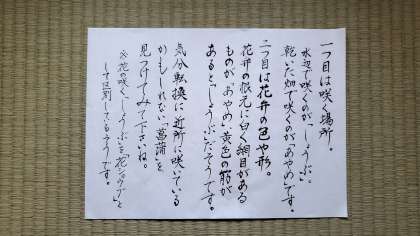 一つ目は咲く場所。
水辺で咲くのが「しょうぶ」に
乾いた畑で咲くのが「あやめ」です。
二つ目は花弁の色や形。
花弁の根元に白く網目がある
ものが「あやめ」黄色の筋が
あると「しょうぶ」だそうです。
気分転換に近所に咲いている
かもしれない「菖蒲」を
見つけてみて下さいね。
※花の咲く「しょうぶ」を「花ショウブ」と
して区別しているそうです。